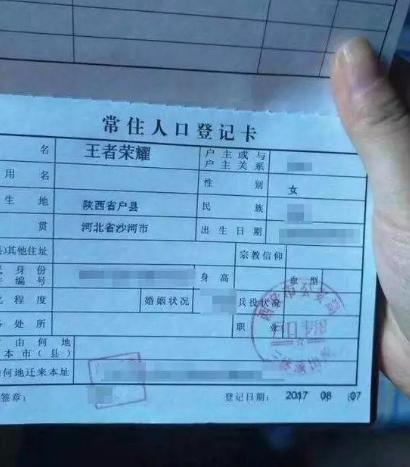 常住人口登记卡
名 王者荣耀 户主或与户主关系
用名 性别 女
生地 陕西省户县 民族
贯 河北省沙河市 出生日期
)其他住址 宗教信仰
身份 编编 身高 血型
程度 婚姻状况 兵役状况
处所 职业
由何地 本市(县)
何地迁来本址
签章： 登记日期： 2017 年 08 月 07